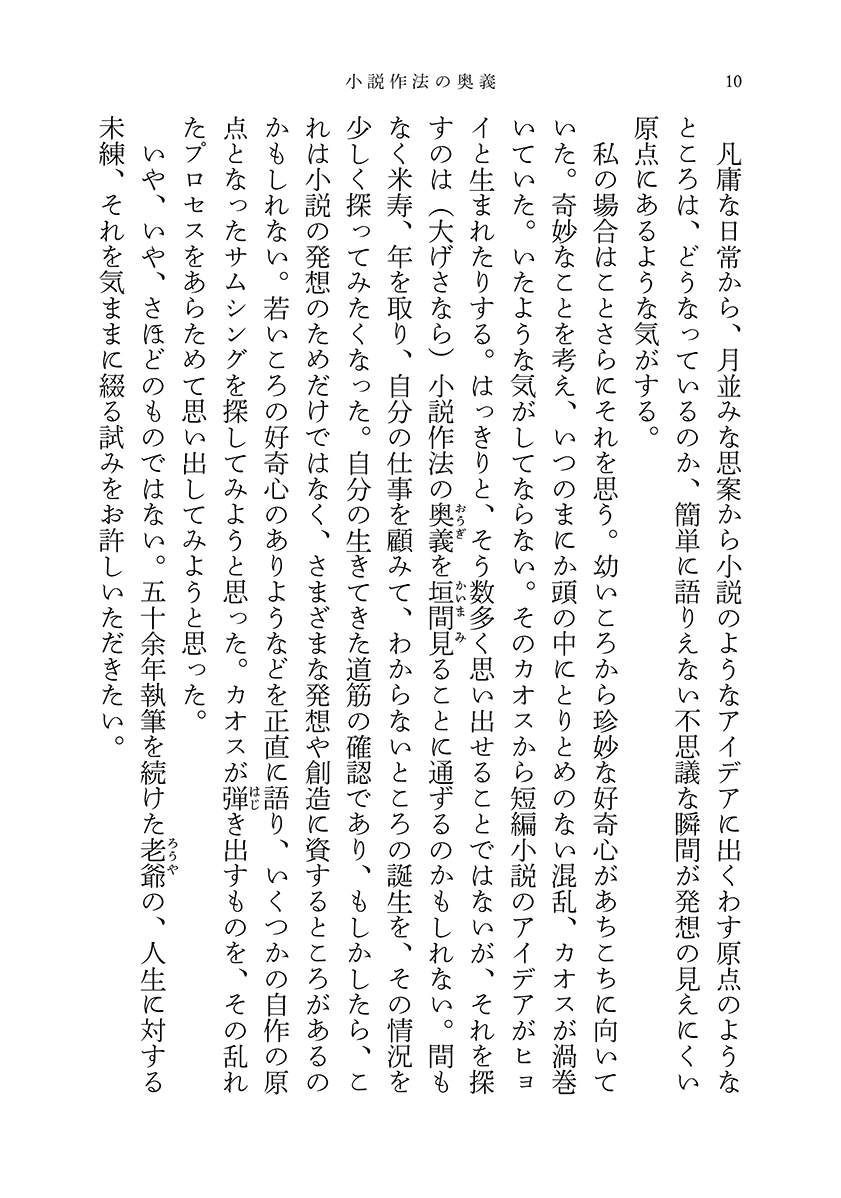 小説作法の奥義
10
凡庸な日常から、月並みな思案から小説のようなアイデアに出くわす原点のような
ところは、どうなっているのか、簡単に語りえない不思議な瞬間が発想の見えにくい
原点にあるような気がする。
私の場合はことさらにそれを思う。幼いころから珍妙な好奇心があちこちに向いて
いた。奇妙なことを考え、いつのまにか頭の中にとりとめのない混乱、カオスが渦巻
いていた。いたような気がしてならない。そのカオスから短編小説のアイデアがヒョ
イと生まれたりする。はっきりと、そう数多く思い出せることではないが、それを探
すのは（大げさなら）小説作法の奥義おうぎを垣間見かいまみることに通ずるのかもしれない。間も
なく米寿、年を取り、自分の仕事を顧みて、わからないところの誕生を、その情況を
少しく探ってみたくなった。自分の生きてきた道筋の確認であり、もしかしたら、こ
れは小説の発想のためだけではなく、さまざまな発想や創造に資するところがあるの
かもしれない。若いころの好奇心のありようなどを正直に語り、いくつかの自作の原
点となったサムシングを探してみようと思った。カオスが弾はじき出すものを、その乱れ
たプロセスをあらためて思い出してみようと思った。
いや、いや、さほどのものではない。五十余年執筆を続けた老爺ろうやの、人生に対する
未練、それを気ままに綴る試みをお許しいただきたい。